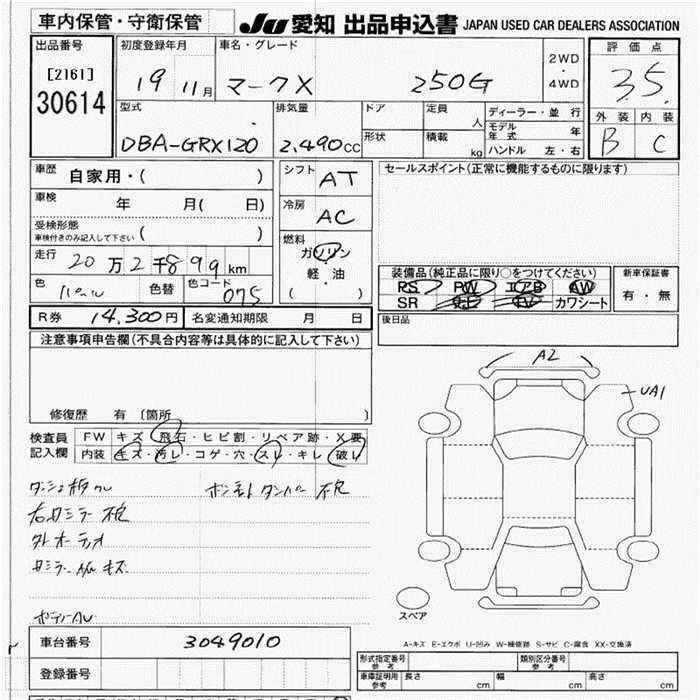 車内保管・守衛保管
JU 愛知 出品申込書 JAPAN USED CAR DEALERS ASSOCIATION
出品番号
[2161]
30614
初度登録年月
19 11月
車名・グレード
マークX 250G
2WD
・
4WD
評価点
3.5
外装 内装
B C
型式
DBA-GRX120
排気量
2.490cc
ドア
形状
定員 人
積載 kg
ディーラー・並行
モデル年式 年
ハンドル 左・右
車歴 自家用・( )
車検 年 月( 日)
受検形態
車検付きのみ記入して下さい ( )
走行 20万2千899km
色 パール 色替 色コード 075
シフト AT
冷房 AC
燃料
ガソリン
軽・油
( )
セールスポイント(正常に機能するものに限ります)
装備品(純正品に限り○をつけてください)
PS PW エアB AW
SR ナビ TV カワシート
新車保証書
有・無
R券 14,300円 名変通知期限 月 日
後日品
注意事項申告欄(不具合内容等は具体的に記入して下さい)
修復歴 有〔箇所 〕
検査員記入欄
FW キズ・飛石・ヒビ割・リペア跡・X要
内装 キズ・汚レ・コゲ・穴・スレ・キレ・破レ
A2
UA1
右ミラー不良
社外オーディオ
ボンネットダンパー不良
スペア
A-キズ E-エクボ U-凹み W-補修跡 S-サビ C-腐食 XX-交換済
車台番号 3049010
登録番号
形式指定番号 参考
類別区分番号 参考
車庫証明用 参考 長さ cm 幅 cm 高さ cm